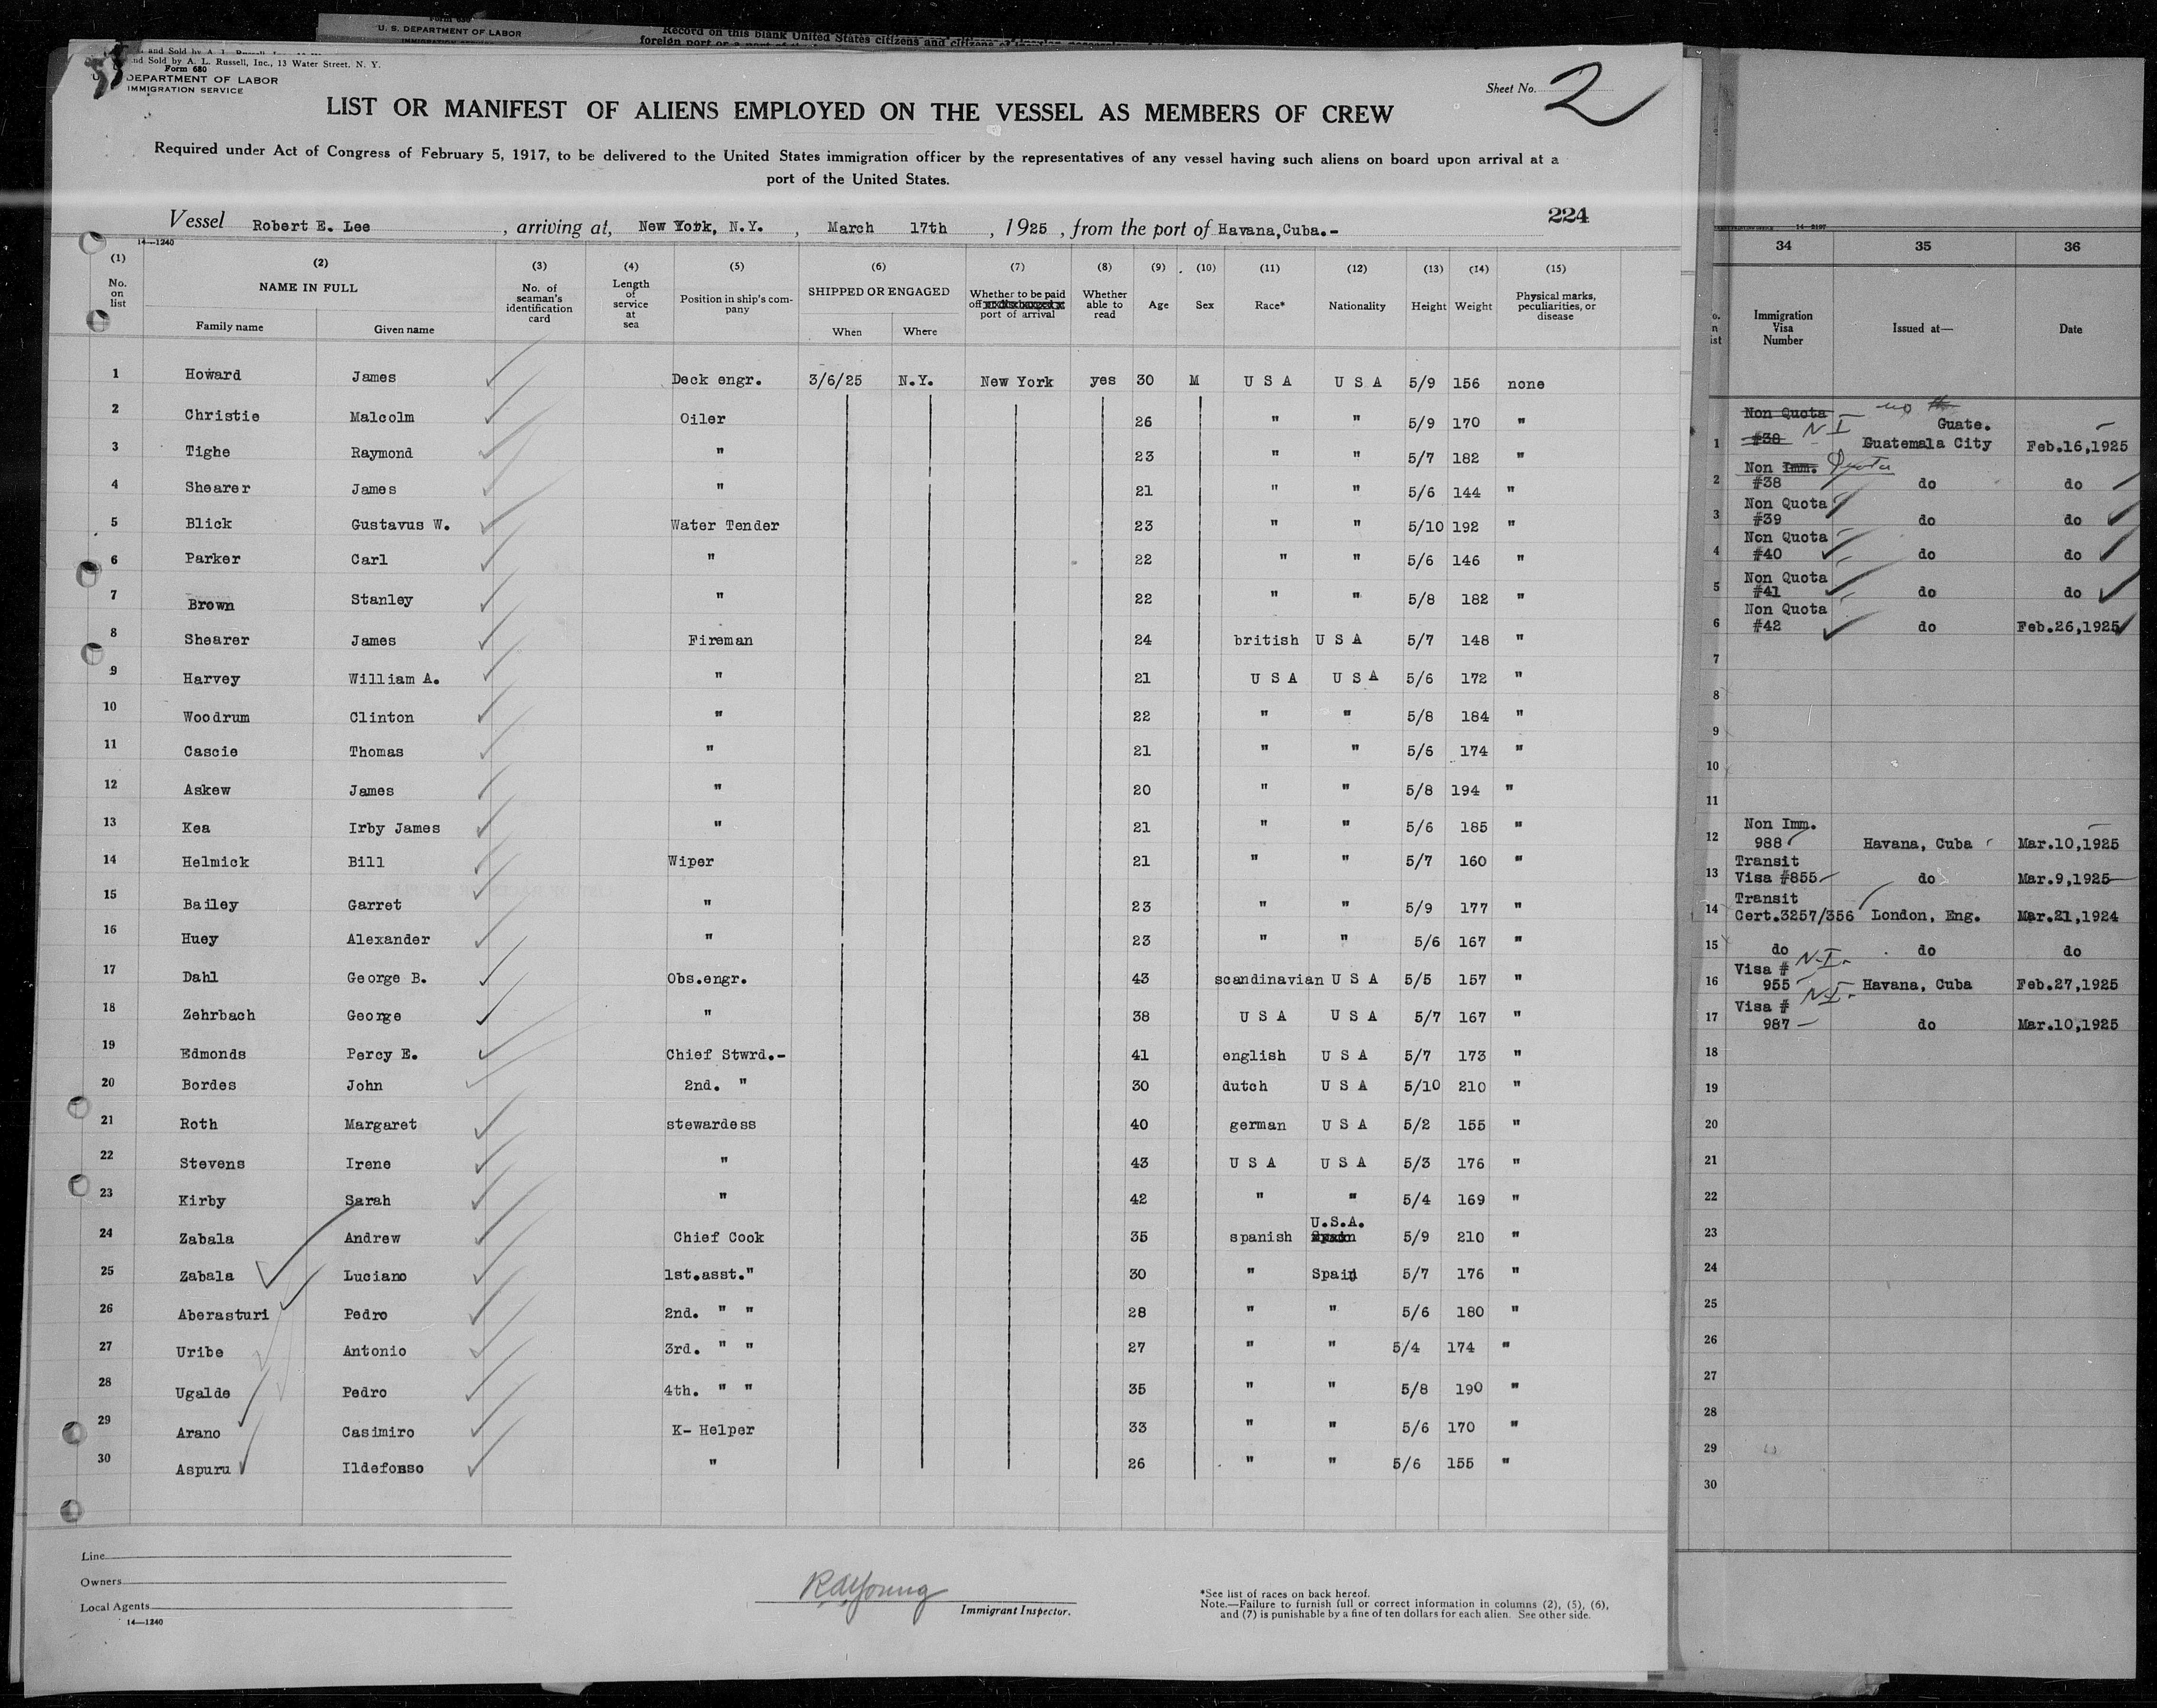 Form 630
U. S. DEPARTMENT OF LABOR
Record on this blank United States citizens and citizens of
and Sold by A. L. Russell, Inc.
nd Sold by A. L. Russell, Inc., 13 Water Street, N. Y.
Form 680
DEPARTMENT OF LABOR
IMMIGRATION SERVICE
Sheet No. 2
LIST OR MANIFEST OF ALIENS EMPLOYED ON THE VESSEL AS MEMBERS OF CREW
Required under Act of Congress of February 5, 1917, to be delivered to the United States immigration officer by the representatives of any vessel having such aliens on board upon arrival at a
port of the United States.
224
Vessel Robert E. Lee , arriving at, New York, N.Y. , March 17th , 1925 , from the port of Havana,Cuba.-
14—1240
(1) (2) (3) (4) (5) (6) (7) (8) (9) (10) (11) (12) (13) (14) (15)
No. on list NAME IN FULL Family name Given name No. of seaman's identification card Length of service at sea Position in ship's company SHIPPED OR ENGAGED When Where Whether to be paid off port of arrival Whether able to read Age Sex Race* Nationality Height Weight Physical marks, peculiarities, or disease
1 Howard James Deck engr. 3/6/25 N.Y. New York yes 30 M U S A U S A 5/9 156 none
2 Christie Malcolm Oiler 26 " " 5/9 170 "
3 Tighe Raymond " 23 " " 5/7 182 "
4 Shearer James " 21 " " 5/6 144 "
5 Blick Gustavus W. Water Tender 23 " " 5/10 192 "
6 Parker Carl " 22 " " 5/6 146 "
7 Brown Stanley " 22 " " 5/8 182 "
8 Shearer James Fireman 24 british U S A 5/7 148 "
9 Harvey William A. " 21 U S A U S A 5/6 172 "
10 Woodrum Clinton " 22 " " 5/8 184 "
11 Cascie Thomas " 21 " " 5/6 174 "
12 Askew James " 20 " " 5/8 194 "
13 Kea Irby James " 21 " " 5/6 185 "
14 Helmick Bill Wiper 21 " " 5/7 160 "
15 Bailey Garret " 23 " " 5/9 177 "
16 Huey Alexander " 23 " " 5/6 167 "
17 Dahl George B. Obs.engr. 43 scandinavian U S A 5/5 157 "
18 Zehrbach George " 38 U S A U S A 5/7 167 "
19 Edmonds Percy E. Chief Stwrd.- 41 english U S A 5/7 173 "
20 Bordes John 2nd. " 30 dutch U S A 5/10 210 "
21 Roth Margaret stewardess 40 german U S A 5/2 155 "
22 Stevens Irene " 43 U S A U S A 5/3 176 "
23 Kirby Sarah " 42 " " 5/4 169 "
24 Zabala Andrew Chief Cook 35 spanish U.S.A. Spain 5/9 210 "
25 Zabala Luciano 1st.asst." 30 " Spain 5/7 176 "
26 Aberasturi Pedro 2nd. " " 28 " " 5/6 180 "
27 Uribe Antonio 3rd. " " 27 " " 5/4 174 "
28 Ugalde Pedro 4th. " " 35 " " 5/8 190 "
29 Arano Casimiro K- Helper 33 " " 5/6 170 "
30 Aspuru Ildefonso " 26 " " 5/6 155 "
Line
Owners
Local Agents
14—1240
Immigrant Inspector.
*See list of races on back hereof.
Note.—Failure to furnish full or correct information in columns (2), (5), (6),
and (7) is punishable by a fine of ten dollars for each alien. See other side.
14—2197
34 35 36
Immigration Visa Number Issued at— Date
Non Quota no
Guate.
1 #38 N I Guatemala City Feb.16,1925
Non Imm. Quota
2 #38 do do
Non Quota
3 #39 do do
Non Quota
4 #40 do do
Non Quota
5 #41 do do
Non Quota
6 #42 do Feb.26,1925
7
8
9
10
11
Non Imm.
12 988 Havana, Cuba Mar.10,1925
Transit
13 Visa #855 do Mar.9,1925
Transit
14 Cert.3257/356 London, Eng. Mar.21,1924
15 do do do
Visa # N-I-
16 955 Havana, Cuba Feb.27,1925
Visa # N-I-
17 987 do Mar.10,1925
18
19
20
21
22
23
24
25
26
27
28
29
30